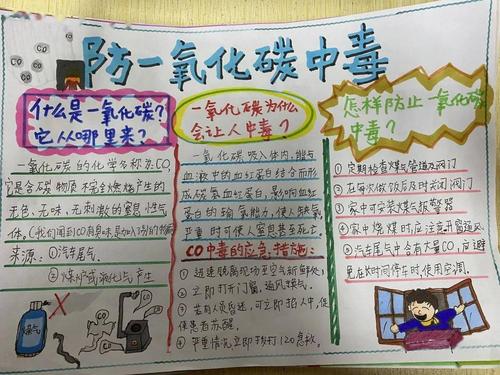 防一氧化碳中毒
CO
CO
CO
什么是一氧化碳?
它从哪里来?
一氧化碳的化学名称为CO,
它是含碳物质不完全燃烧产生的
无色、无味、无刺激的窒息性气
体,(我们闻到CO有臭味是加入了別的物质)
来源:①汽车尾气
② 煤炉或液化气产生
煤气
一氧化碳为什么
会让人中毒?
一氧化碳吸入体内,能与
血液中的血红蛋白结合而形
成碳氧血红蛋白,影响血红
蛋白的输氧能力,使人缺氧
严重时可使人窒息甚至死亡.
CO中毒的应急措施:
① 迅速脱离现场至空气新鲜处;
② 立即打开门窗,通风换气.
③ 若有人员昏迷,可立即掐人中,促
使患者苏醒.
④ 严重情况立即拨打120急救.
怎样防止一氧化碳
中毒?
① 定期检查煤气管道及阀门
② 在每次做饭后及时关闭阀门
③ 家中可安装煤气报警器
④ 家中烧煤时应注意开窗通风
⑤ 汽车尾气中含有大量CO,应避
免在长时间停车时使用空调.